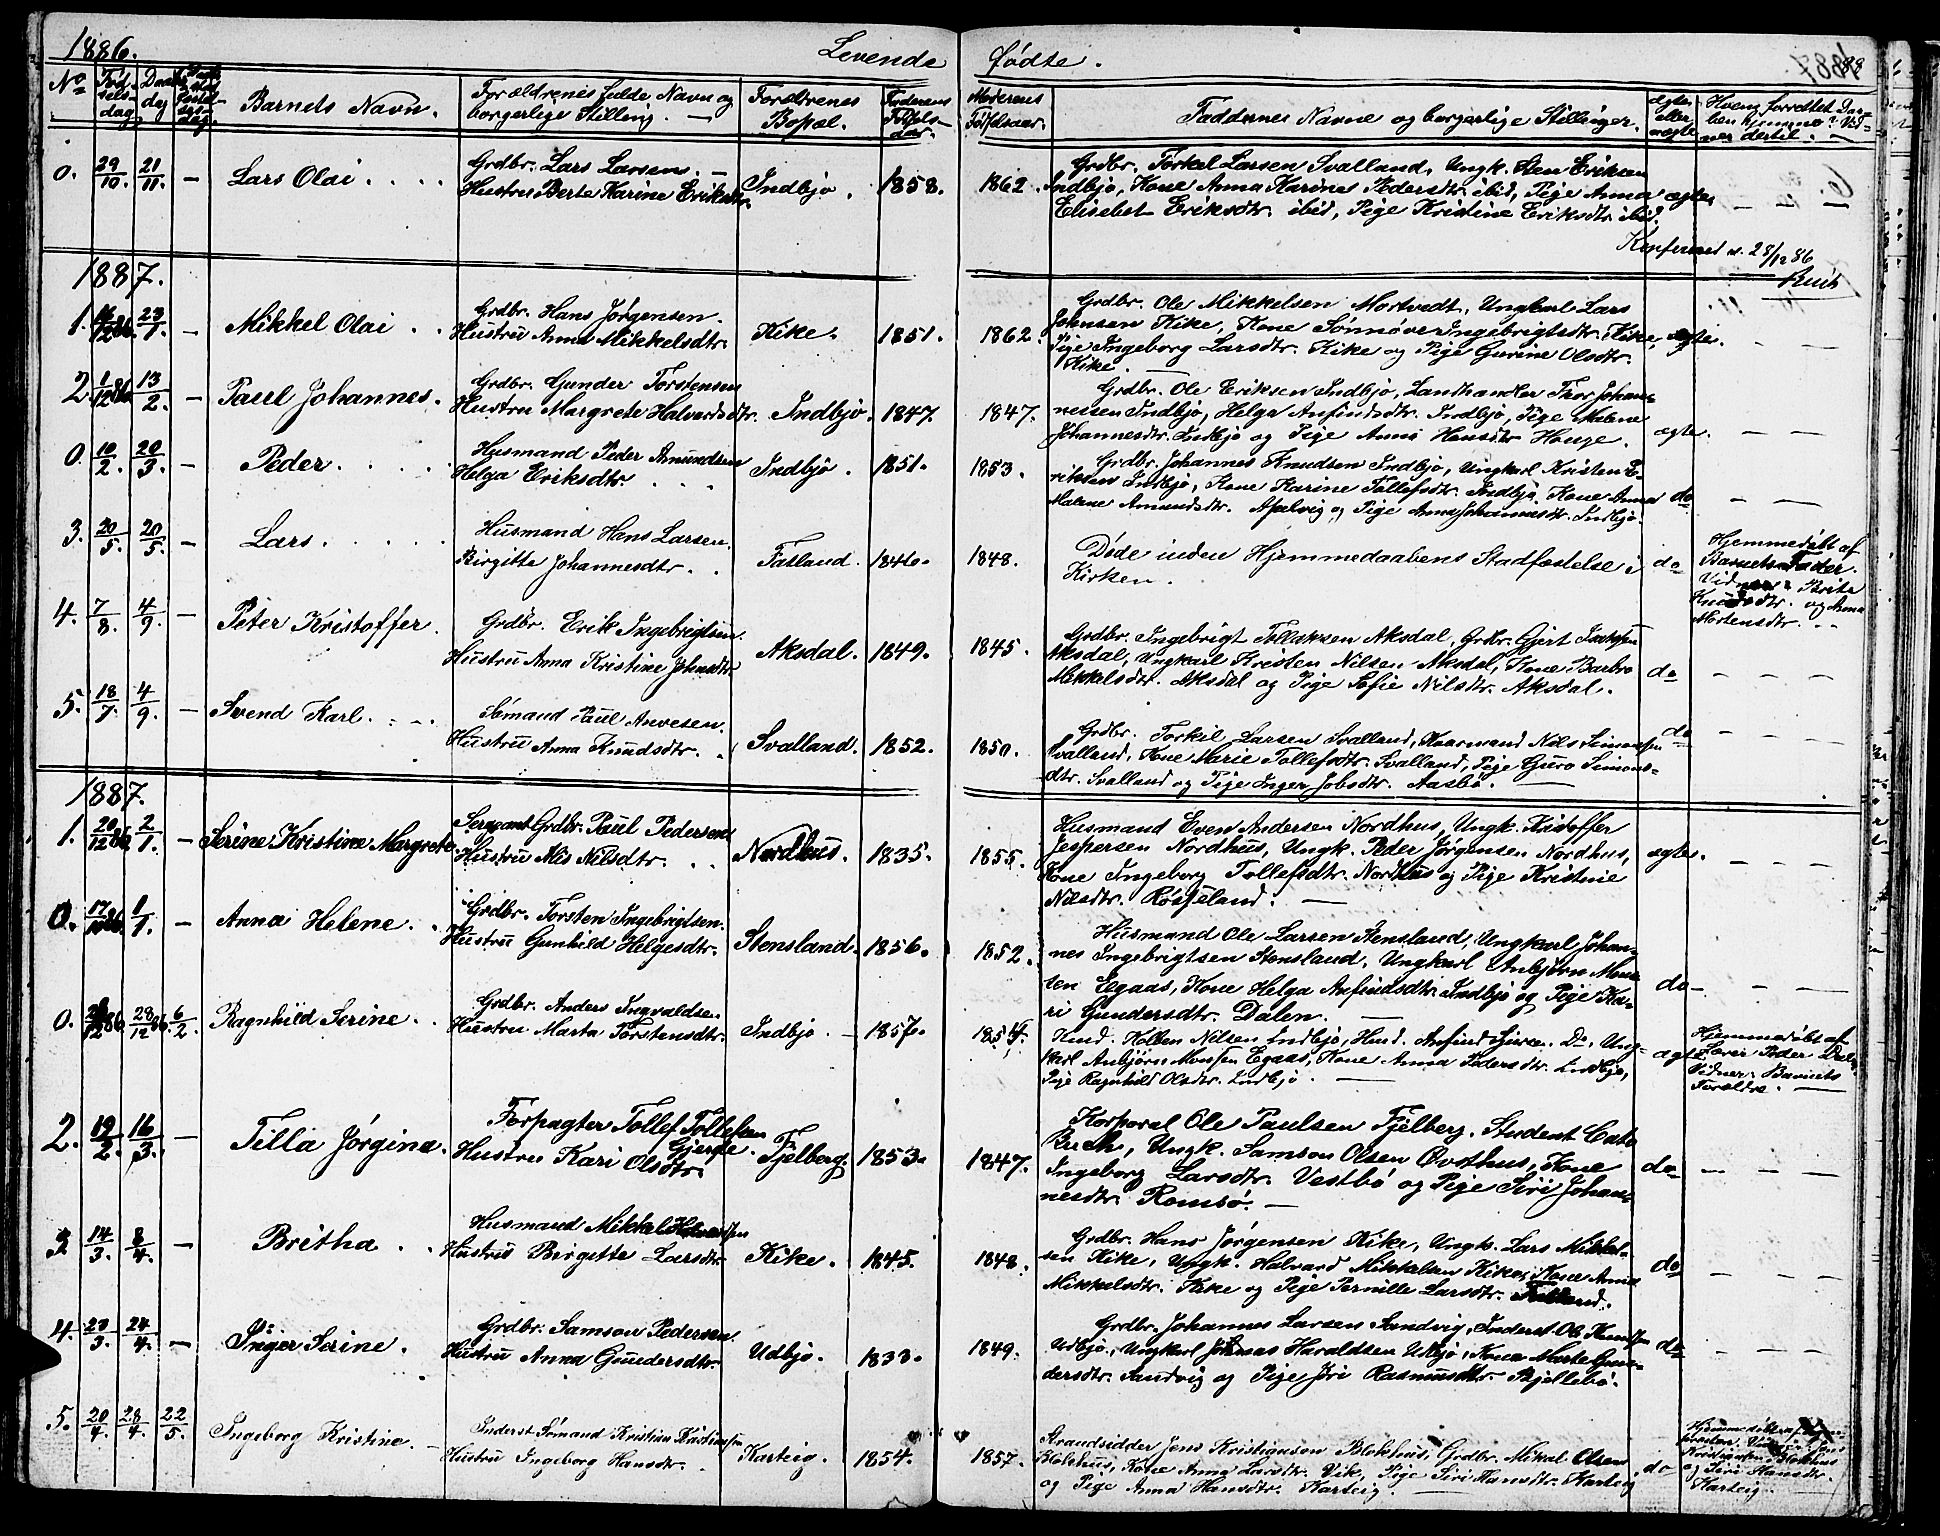 1886. Levende fødte.
No Fødselsdag Daabsdag Barnets Navn. Forældrenes fulde Navn og borgerlige Stilling. Forældrenes Bopæl. Faderens Fødselsaar. Moderens Fødselsaar. Faddernes Navne og borgerlige Stillinger. ægte eller uægte
0. 29/10. 21/11. – Lars Olai. Grdbr. Lars Larsens. –
Hustru Berte Karine Eriksdtr. Indbjo. 1858. 1862.
Grdbr. Torkel Larsen Svalland, Ungk. Sten Eriksen
Indbjo, Kone Anna Karines Pedersdtr. ibid, Pige Anna ægte
Elisebet Eriksdtr. ibid, Pige Kristine Eriksdtr. ibid.
Konfereret d. 28/12 86
1887.
1. 23/1. – Mikkel Olai. Grdbr. Hans Jørgensen.
Hustru Anna Mikkelsdtr. Kike. 1851. 1862.
Grdbr. Ole Mikkelsen Mortvedt, Ungkarl Lars
Johnsen Kike, Kone Sønnøve Ingebrigtsdtr. Kike, ægte.
Pige Ingeborg Larsdtr. Kike og Pige Gurine Olsdtr.
Kike. –
2. 1/12 86. 13/2. – Paul Johannes. Grdbr. Gunder Torstensen
Hustru Margrete Halvardsdtr. Indbjo. 1847. 1847.
Grdbr. Ole Eriksen Indbjo, Landhandler Thor Johan-
nessen Indbjo, Helga Anfindsdtr. Indbjo, Pige Malene
Johannesdtr. Indbjo og Pige Anna Hansdtr. Hauge. ægte.
0. 10/2. 20/3. – Peder. Husmand Peder Amundsen
Helga Eriksdtr. Indbjo. 1851. 1853.
Grdbr. Johannes Knudsen Indbjo, Ungkarl Kristen E-
riksen Indbjo, Kone Karine Tollefsdtr. Indbjo, Kone Anna do
Malene Amundsdtr. Apelvig og Pige Anna Johannesdtr. Indbjo.
3. 20/5. 20/5. – Lars. Husmand Hans Larsen.
Birgitte Johannesdtr. Fatland. 1846. 1848.
Døde inden Hjemmedaabens Stadfæstelse i do
Kirken.
Hjemmedøbt af
Barnets Fader.
Vidner: Brite
Knudsdtr. og Anna
Mortensdtr.
4. 7/8. 4/9. – Peter Kristoffer. Grdbr. Erik Ingebrigtsen.
Hustru Anna Kristine Johnsdtr. Aksdal. 1849. 1845.
Grdbr. Ingebrigt Tollaksen Aksdal, Grdbr. Gjert
Aksdal, Ungkarl Kristen Nilsen Aksdal, Kone Barbro
Mikkelsdtr. Aksdal og Pige Sofie Nilsdtr. Aksdal. do
5. 18/7. 4/9. – Svend Karl. Sømand Paul Arvesen.
Hustru Anna Knudsdtr. Svalland. 1852. 1850.
Grdbr. Torkil Larsen Svalland, Kaarmand Nils Simonsen do
Svalland, Kone Marie Tollefsdtr. Svalland, Pige Guro Simons-
dtr. Svalland og Pige Inger Jobsdtr. Aasbø. –
1887.
1. 20/12 86. 2/1. – Serine Kristine Margrete. Sergeant Grdbr. Paul Pedersen
Hustru Nilsdtr. Nordhus. 1835. 1855.
Husmand Even Andersen Nordhus, Ungk. Kristoffer
Jespersen Nordhus, Ungk. Peder Jørgensen Nordhus, ægte.
Kone Ingeborg Tollefsdtr. Nordhus og Pige Kristine
Nilsdtr. –
0. 1/1. – Anna Helene. Grdbr. Torsten Ingebrigtsen.
Hustru Gunhild Helgesdtr. Stensland. 1856. 1852.
Husmand Ole Larsen Stensland, Ungkarl Johan-
nes Ingebrigtsen Stensland, Ungkarl Anbjørn Mon-
sen Egaas, Kone Helga Anfindsdtr. Indbjo og Pige Ka- do
ri Gundersdtr. Dalen. –
0. 28/12 86. 6/2. Ragnhild Serine. Grdbr. Anders Ingvaldsen
Hustru Marta Torstensdtr. Indbjo – 1857. 1854.
Husmd. Nilsen Indbjo, Husmd. Anfind Do, Ung-
karl Anbjørn Monsen Egaas, Kone Anna Pedersdtr. Indbjo, ægte
Pige Ragnhild Olsdtr. Indbjo. –
Hjemmedøbt af
Lærer Peder
Vidner: Barnets
Forældre. –
2. 19/2. 16/3. – Tilla Jørgine. Forpagter Tollef Tollefsen
Gjerde.
Hustru Kari Olsdtr. Fjelberg. 1853. 1847.
Korporal Ole Paulsen Fjelberg, Student
Buch, Ungk. Samson Olsen Øvsthus, Kone do
Ingeborg Larsdtr. Vestbø og Pige Siri Johan-
nesdtr. Romsø. –
3. 14/3. 8/4. – Britha. Husmand Mikkel Halvardsen
Hustru Birgitte Larsdtr. Kike. 1845. 1848.
Grdbr. Hans Jørgensen Kike, Ungk. Lars Mikkel-
sen Kike, Ungk. Halvard Mikkelsen Kike, Kone Anna do
Mikkelsdtr. Kike og Pige Pernille Larsdtr. Fatland.
4. 23/3. 24/4. – Inger Serine. Grdbr. Samson Pedersen
Hustru Anna Gundersdtr. Udbjo. 1833. 1849.
Grdbr. Johannes Larsen Sandvig, Inderst Ole Knudsen do
Udbjo, Ungkarl Haraldsen Udbjo, Kone Marta Gun-
dersdtr. Sandvig og Pige Siri Rasmusdtr. Skjellebø.
5. 20/4. 28/4. 22/5. Ingeborg Kristine. – Inderst Sømand Kristian Kristiansen
Hustru Ingeborg Hansdtr. Karteig. 1854. 1857.
Strandsidder Jens Kristiansen Blokhus, Grdbr. Mikal Olsen
Blokhus, Kone Anna Larsdtr. Vik, Pige Siri Hansdtr. Karteig do
og Pige Anna Hansdtr. Karteig. –
Hjemmedøbt af
Vidner: Jens
Kristiansen Blokhus
og Siri Hansdtr.
Karteig.